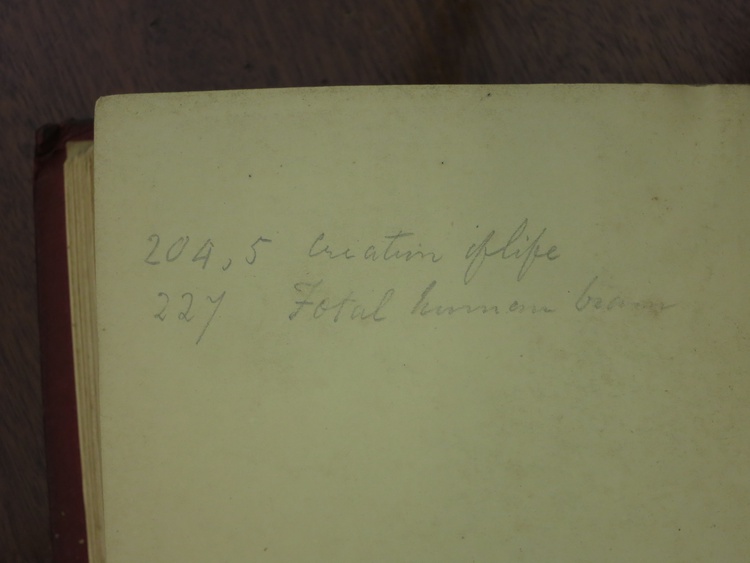 204,5 Creation of life
227 Fotal human brain